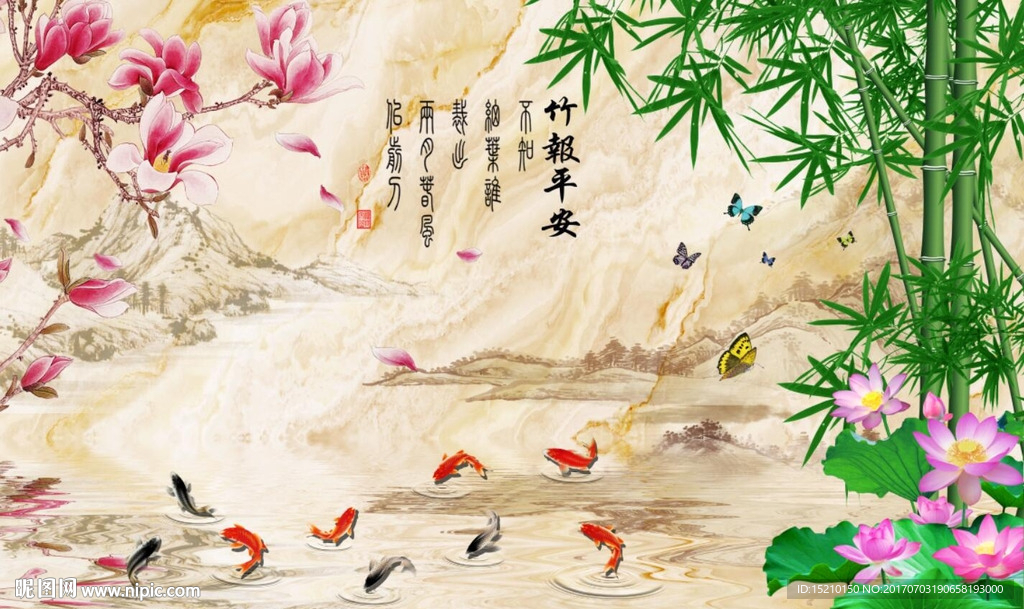 竹報平安
不知
細葉誰
裁出
二月春風
似剪刀
昵图网 www.nipic.com
ID:15210150 NO:20170703190658193000